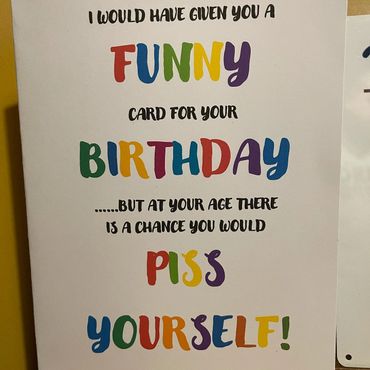 I WOULD HAVE GIVEN YOU A
FUNNY
CARD FOR YOUR
BIRTHDAY
......BUT AT YOUR AGE THERE
IS A CHANCE YOU WOULD
PISS
YOURSELF!